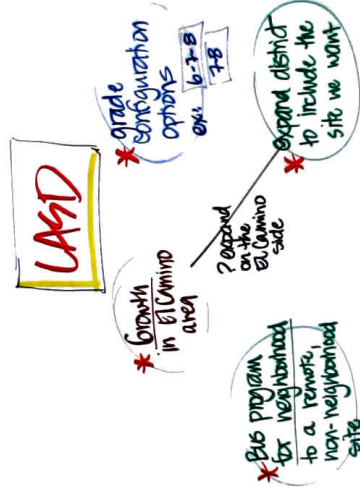 LASD
* grade
configuration
options
ex: 6-7-8
7-8
* Growth
in El Camino
area
? expand
on the
El Camino
side
* expand district
to include the
site we want
* Bus program
for neighborhood
to a remote,
non-neighborhood
site